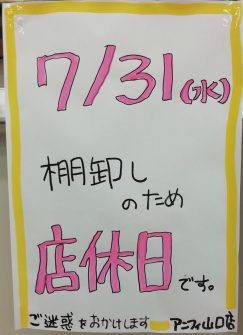 7/31(水)
棚卸し
のため
店休日です。
ご迷惑をおかけします アニフィ山口店